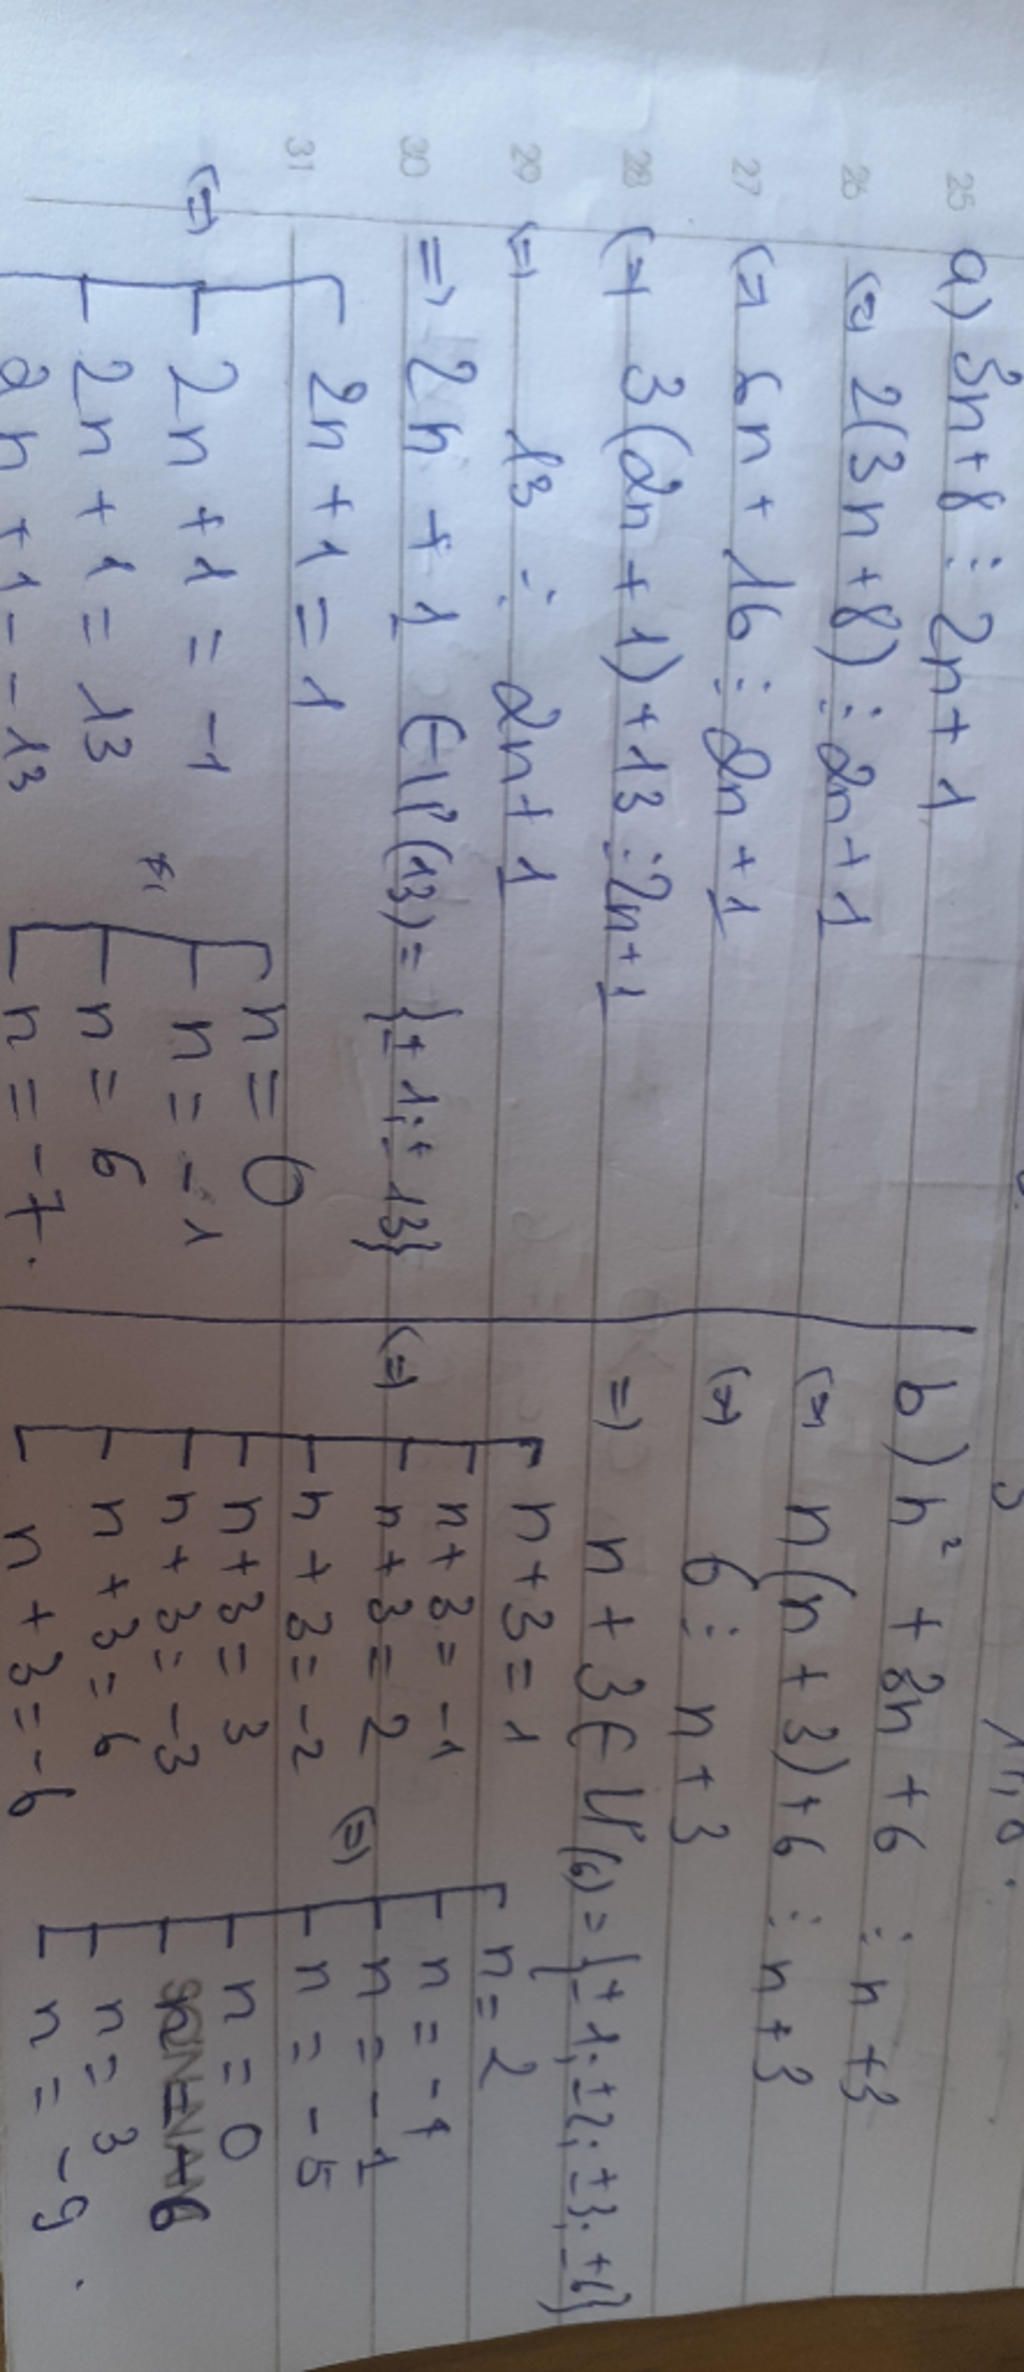 25
26
27
28
29
30
31
a) 3n+8 ⋮ 2n+1
(=) 2(3n+8) ⋮ 2n+1
(=) 6n + 16 ⋮ 2n+1
(=) 3(2n+1)+13 ⋮ 2n+1
(=) 13 ⋮ 2n+1
=) 2n+1 ∈ Ư(13) = {±1; ±13}
2n+1=1
(=) 2n+1=-1
2n+1=13
2n+1=-13
n=0
n=-1
n=6
n=-7.
b) n² + 3n +6 ⋮ n+3
(=) n(n+3)+6 ⋮ n+3
(=) 6 ⋮ n+3
=) n+3 ∈ Ư(6) = {±1; ±2; ±3; ±6}
n+3=1
n+3=-1
(=) n+3=2
n+3=-2
n+3=3
n+3=-3
n+3=6
n+3=-6
(=) n=2
n=-4
n=-1
n=-5
n=0
n=-6
n=3
n=-9.